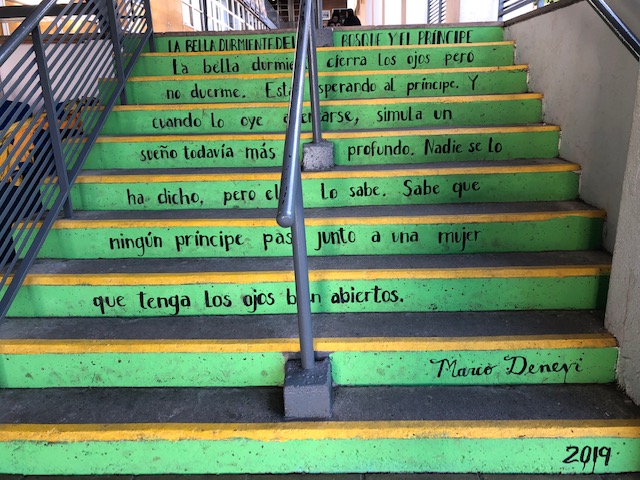 LA BELLA DURMIENTE DEL BOSQUE Y EL PRÍNCIPE
La bella durmiente cierra los ojos pero
no duerme. Está esperando al príncipe. Y
cuando lo oye acercarse, simula un
sueño todavía más profundo. Nadie se lo
ha dicho, pero ella lo sabe. Sabe que
ningún príncipe pasa junto a una mujer
que tenga los ojos bien abiertos.
Marco Denevi
2019